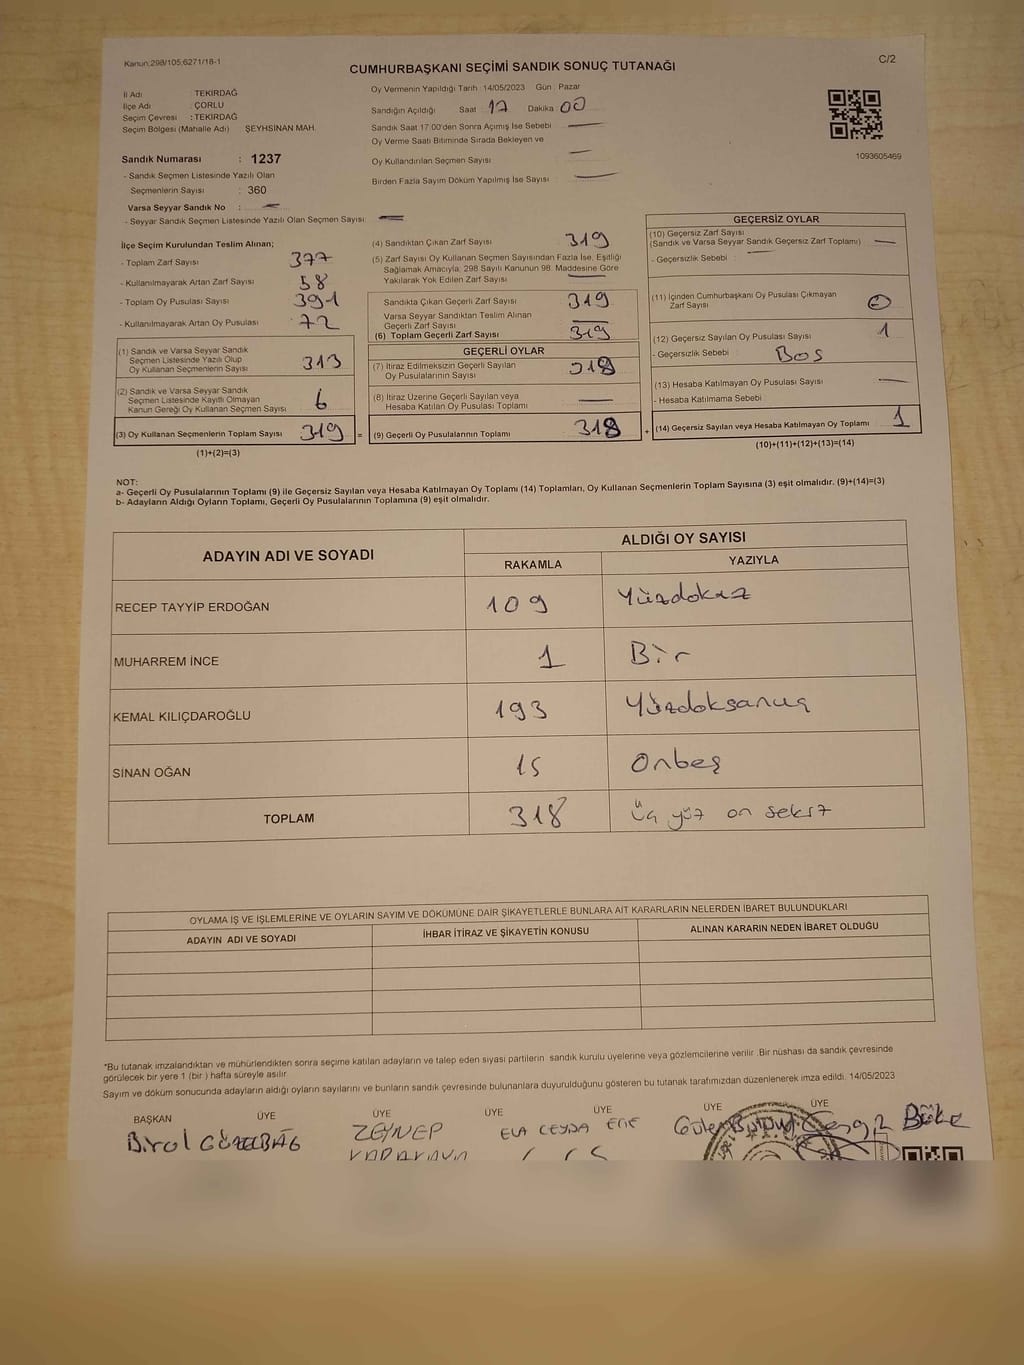 Kanun:298/105;6271/18-1
C/2
CUMHURBAŞKANI SEÇİMİ SANDIK SONUÇ TUTANAĞI
İl Adı : TEKİRDAĞ
İlçe Adı : ÇORLU
Seçim Çevresi : TEKİRDAĞ
Seçim Bölgesi (Mahalle Adı) ŞEYHSİNAN MAH.
Sandık Numarası : 1237
- Sandık Seçmen Listesinde Yazılı Olan
Seçmenlerin Sayısı : 360
Varsa Seyyar Sandık No : —
- Seyyar Sandık Seçmen Listesinde Yazılı Olan Seçmen Sayısı —
Oy Vermenin Yapıldığı Tarih :14/05/2023 Gün : Pazar
Sandığın Açıldığı Saat 17 Dakika : 00
Sandık Saat 17:00'den Sonra Açımış İse Sebebi —
Oy Verme Saati Bitiminde Sırada Bekleyen ve
Oy Kullandırılan Seçmen Sayısı —
Birden Fazla Sayım Döküm Yapılmış İse Sayısı —
1093605469
İlçe Seçim Kurulundan Teslim Alınan;
- Toplam Zarf Sayısı : 377
- Kullanılmayarak Artan Zarf Sayısı : 58
- Toplam Oy Pusulası Sayısı : 391
- Kullanılmayarak Artan Oy Pusulası : 72
(1) Sandık ve Varsa Seyyar Sandık
Seçmen Listesinde Yazılı Olup
Oy Kullanan Seçmenlerin Sayısı 313
(2) Sandık ve Varsa Seyyar Sandık
Seçmen Listesinde Kayıtlı Olmayan
Kanun Gereği Oy Kullanan Seçmen Sayısı 6
(3) Oy Kullanan Seçmenlerin Toplam Sayısı 319 =
(1)+(2)=(3)
(4) Sandıktan Çıkan Zarf Sayısı 319
(5) Zarf Sayısı Oy Kullanan Seçmen Sayısından Fazla İse, Eşitliği
Sağlamak Amacıyla, 298 Sayılı Kanunun 98. Maddesine Göre
Yakılarak Yok Edilen Zarf Sayısı —
Sandıkta Çıkan Geçerli Zarf Sayısı 319
Varsa Seyyar Sandıktan Teslim Alınan
Geçerli Zarf Sayısı —
(6) Toplam Geçerli Zarf Sayısı 319
GEÇERLİ OYLAR
(7) İtiraz Edilmeksizin Geçerli Sayılan
Oy Pusulalarının Sayısı 318
(8) İtiraz Üzerine Geçerli Sayılan veya
Hesaba Katılan Oy Pusulası Toplamı —
(9) Geçerli Oy Pusulalarının Toplamı 318 +
GEÇERSİZ OYLAR
(10) Geçersiz Zarf Sayısı
(Sandık ve Varsa Seyyar Sandık Geçersiz Zarf Toplamı) —
- Geçersizlik Sebebi : —
(11) İçinden Cumhurbaşkanı Oy Pusulası Çıkmayan
Zarf Sayısı 0
(12) Geçersiz Sayılan Oy Pusulası Sayısı 1
- Geçersizlik Sebebi : Boş
(13) Hesaba Katılmayan Oy Pusulası Sayısı —
- Hesaba Katılmama Sebebi
(14) Geçersiz Sayılan veya Hesaba Katılmayan Oy Toplamı 1
(10)+(11)+(12)+(13)=(14)
NOT:
a- Geçerli Oy Pusulalarının Toplamı (9) ile Geçersiz Sayılan veya Hesaba Katılmayan Oy Toplamı (14) Toplamları, Oy Kullanan Seçmenlerin Toplam Sayısına (3) eşit olmalıdır. (9)+(14)=(3)
b- Adayların Aldığı Oyların Toplamı, Geçerli Oy Pusulalarının Toplamına (9) eşit olmalıdır.
ADAYIN ADI VE SOYADI ALDIĞI OY SAYISI
RAKAMLA YAZIYLA
RECEP TAYYİP ERDOĞAN 109 Yüzdokuz
MUHARREM İNCE 1 Bir
KEMAL KILIÇDAROĞLU 193 Yüzdoksanüç
SİNAN OĞAN 15 Onbeş
TOPLAM 318 Üç yüz on sekiz
OYLAMA İŞ VE İŞLEMLERİNE VE OYLARIN SAYIM VE DÖKÜMÜNE DAİR ŞİKAYETLERLE BUNLARA AİT KARARLARIN NELERDEN İBARET BULUNDUKLARI
ADAYIN ADI VE SOYADI İHBAR İTİRAZ VE ŞİKAYETİN KONUSU ALINAN KARARIN NEDEN İBARET OLDUĞU
*Bu tutanak imzalandıktan ve mühürlendikten sonra seçime katılan adayların ve talep eden siyasi partilerin sandık kurulu üyelerine veya gözlemcilerine verilir .Bir nüshası da sandık çevresinde
görülecek bir yere 1 (bir ) hafta süreyle asılır.
Sayım ve döküm sonucunda adayların aldığı oyların sayılarını ve bunların sandık çevresinde bulunanlara duyurulduğunu gösteren bu tutanak tarafımızdan düzenlenerek imza edildi. 14/05/2023
BAŞKAN ÜYE ÜYE ÜYE ÜYE ÜYE ÜYE
Birol GÜZELBAĞ ZEYNEP ELA CEYDA Cengiz Böke